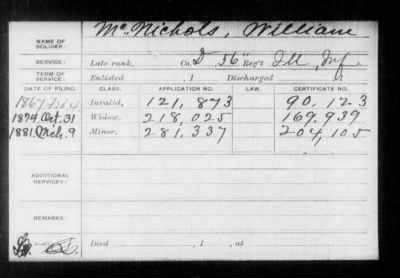 NAME OF SOLDIER: McNichols, William
SERVICE: Late rank, Co. D, 56" Reg't Ill. Inf.
TERM OF SERVICE: Enlisted , 1 Discharged , 1
DATE OF FILING. CLASS. APPLICATION NO. LAW. CERTIFICATE NO.
1867 Invalid, 121,873 90.123
1874. Oct. 31 Widow, 218,025 169,939
1881. Mch. 9 Minor, 281.337 204,105
ADDITIONAL SERVICES:
REMARKS:
Died , 1 , at